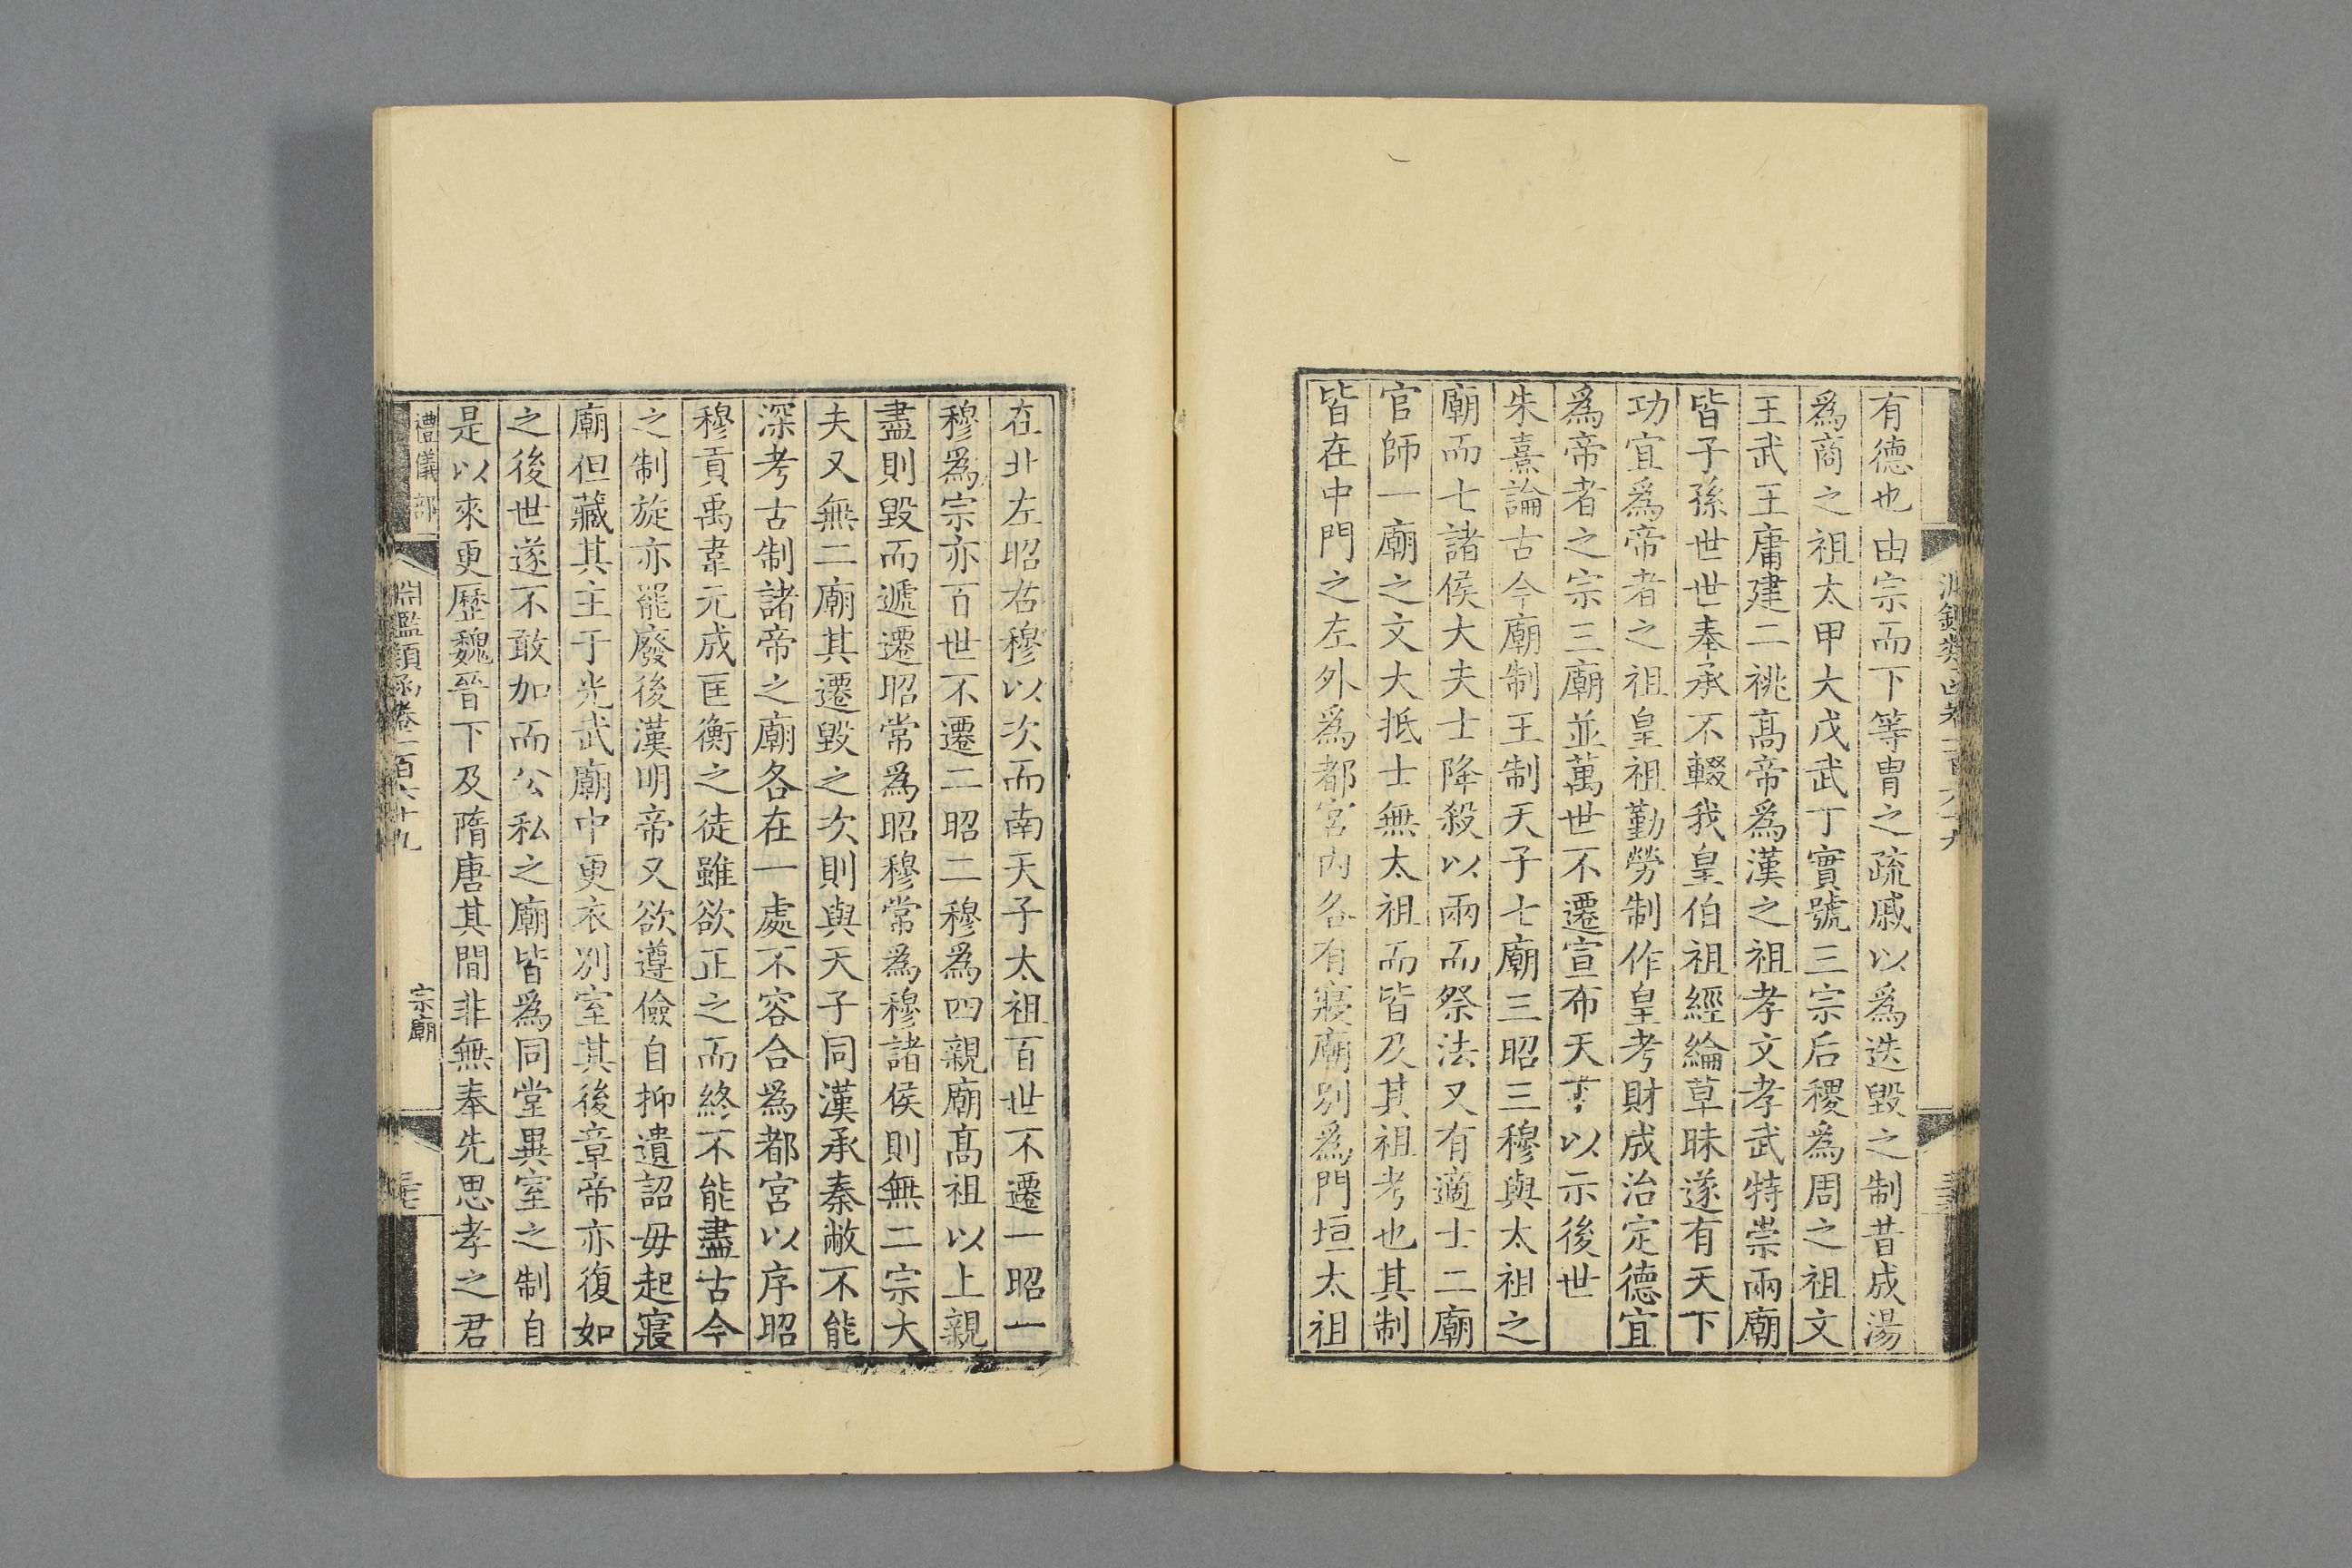 有德也由宗而下等胄之疏戚以爲迭毀之制昔成湯
爲商之祖太甲大戊武丁實號三宗后稷爲周之祖文
王武王庸建二祧高帝爲漢之祖孝文孝武特崇兩廟
皆子孫世世奉承不輟我皇伯祖經綸草昧遂有天下
功宜爲帝者之祖皇祖勤勞制作皇考財成治定德宜
爲帝者之宗三廟並萬世不遷宣布天下以示後世
朱熹論古今廟制王制天子七廟三昭三穆與太祖之
廟而七諸侯大夫士降殺以兩而祭法又有適士二廟
官師一廟之文大抵士無太祖而皆及其祖考也其制
皆在中門之左外爲都宮內各有寢廟別爲門垣太祖
在北左昭右穆以次而南天子太祖百世不遷一昭一
穆爲宗亦百世不遷二昭二穆爲四親廟高祖以上親
盡則毀而遞遷昭常爲昭穆常爲穆諸侯則無二宗大
夫又無二廟其遷毀之次則與天子同漢承秦敝不能
深考古制諸帝之廟各在一處不容合爲都宮以序昭
穆貢禹韋元成匡衡之徒雖欲正之而終不能盡古今
之制旋亦罷廢後漢明帝又欲遵儉自抑遺詔毋起寢
廟但藏其主于光武廟中更衣別室其後章帝亦復如
之後世遂不敢加而公私之廟皆爲同堂異室之制自
是以來更歷魏晉下及隋唐其間非無奉先思孝之君
禮儀部
淵鑑類函卷一百六十九
宗廟